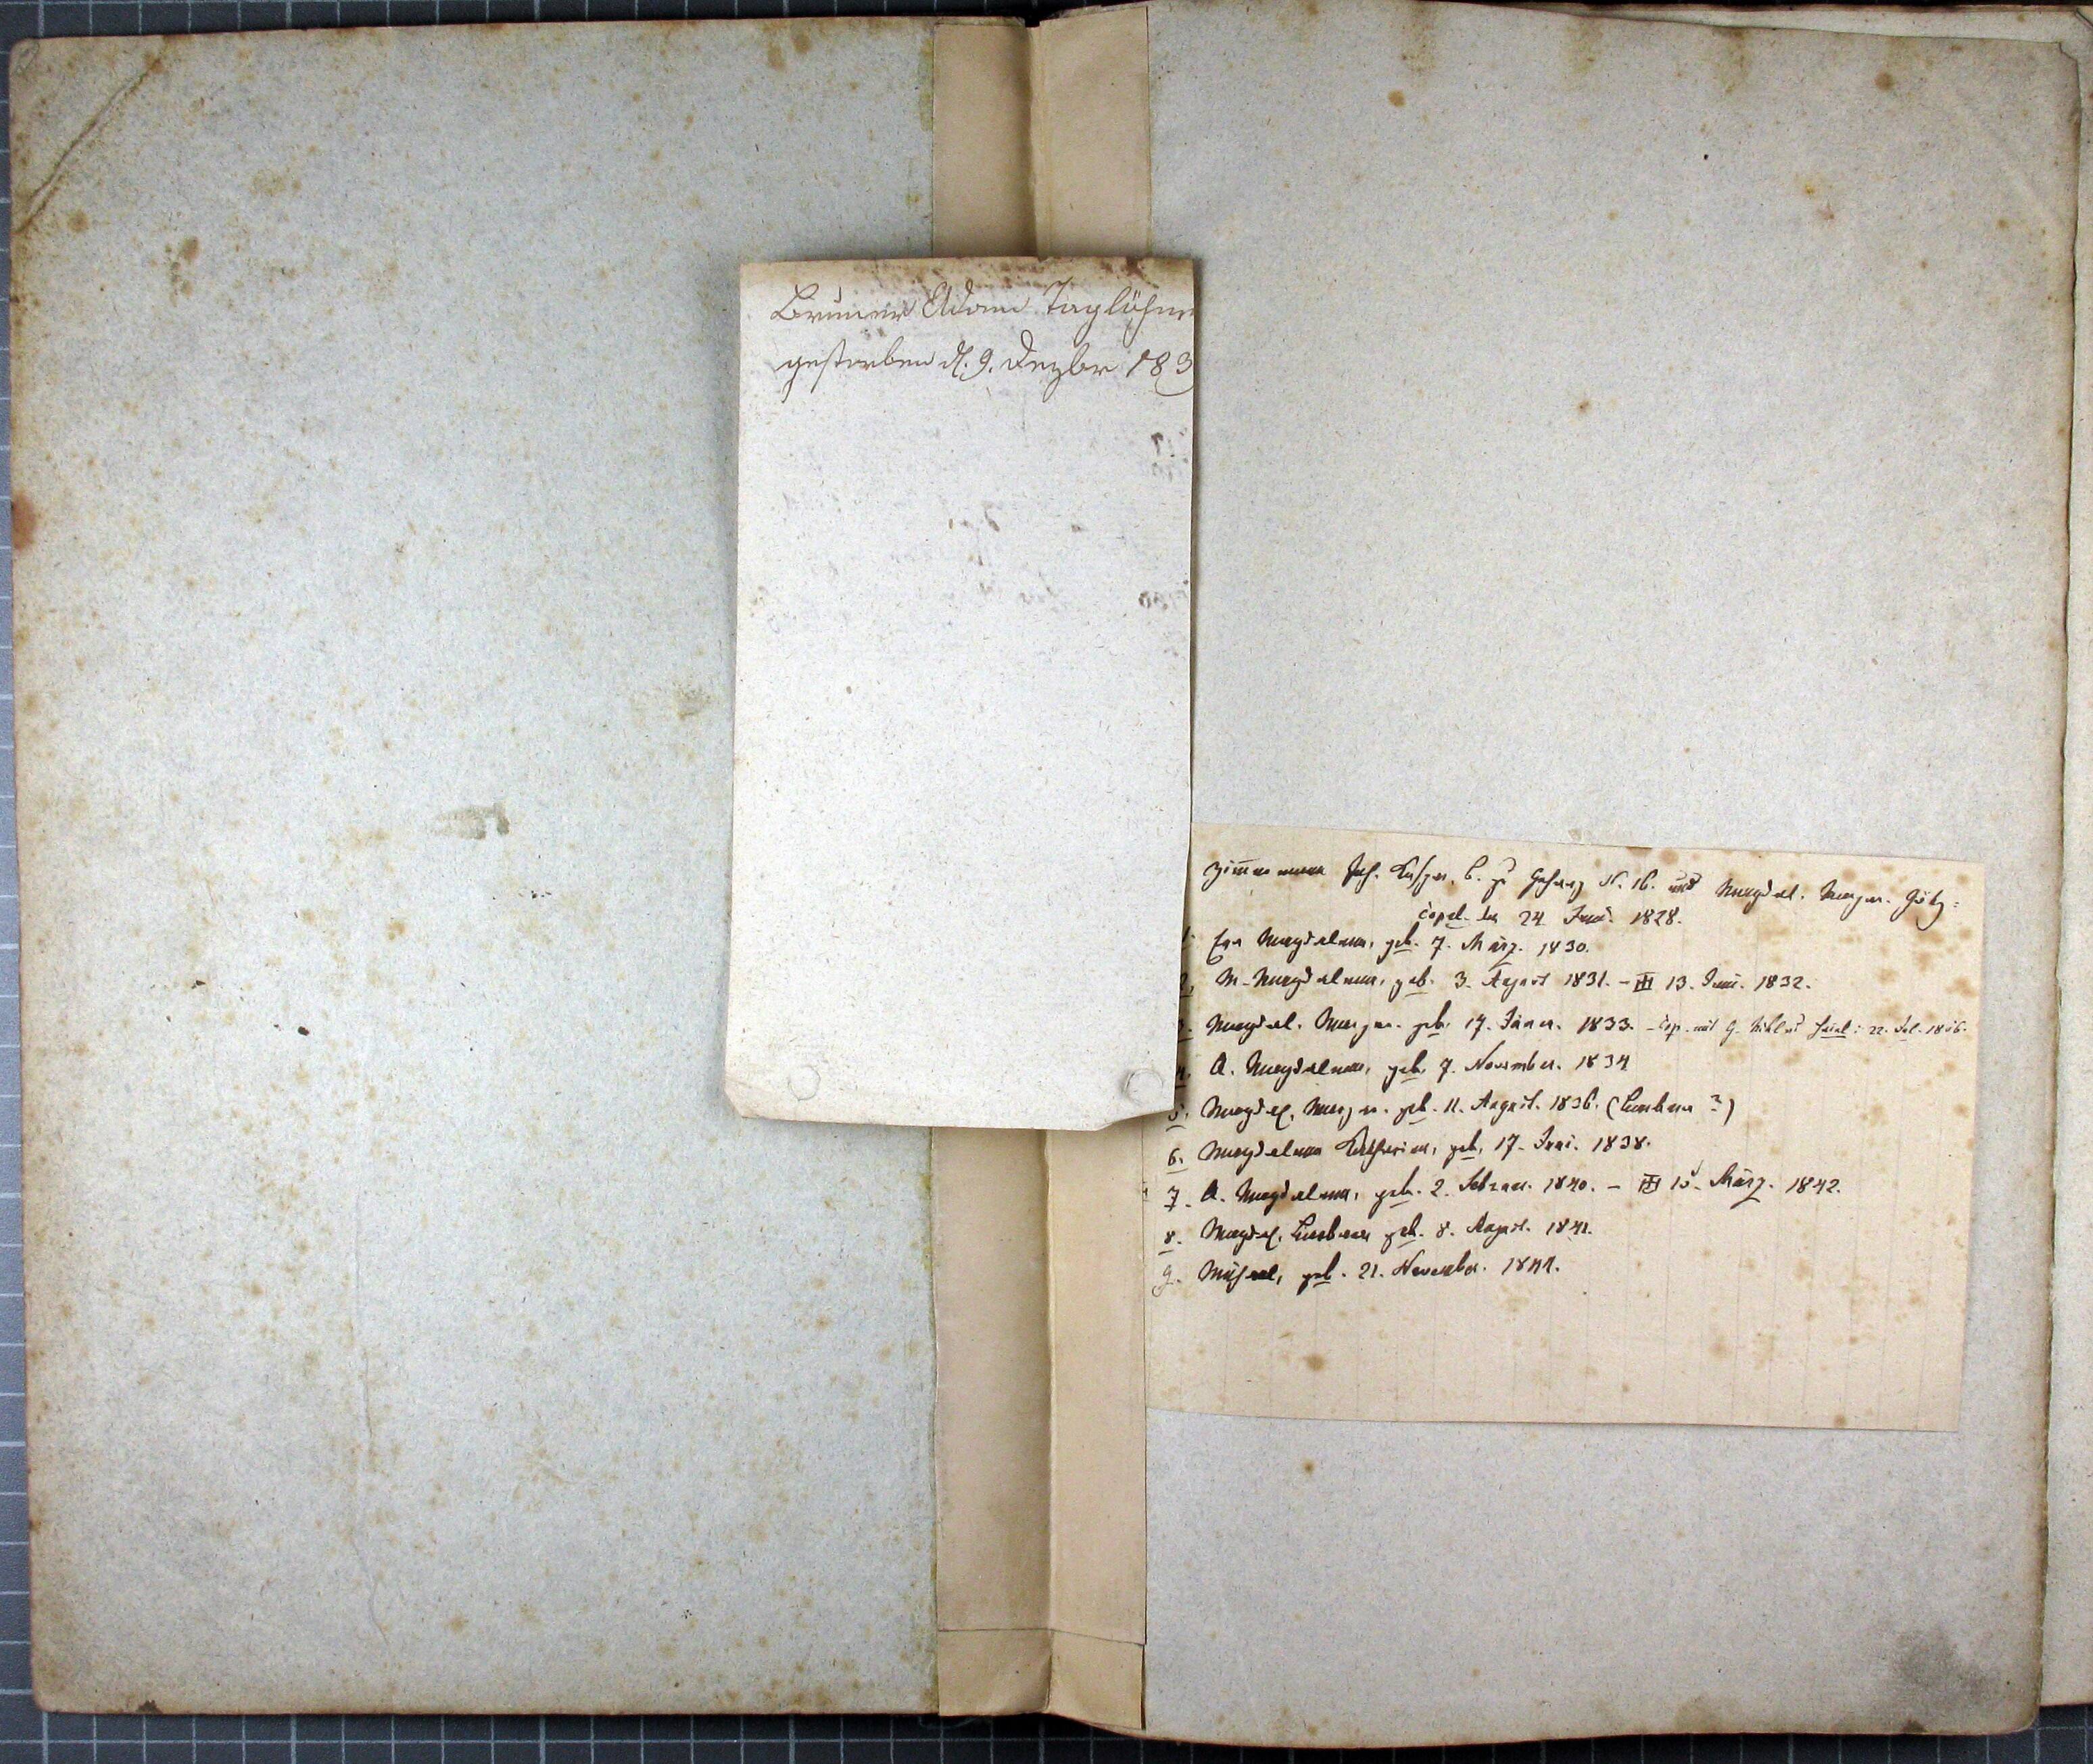 Brunner Adam Taglöhner
gestorben d. 9. Dezbr 183
Zimmermann Joh. Kaspar, B. zu N. 16. und Magdal. Margar. Götz:
copul. den 24. Juni. 1828.
1. Eva Magdalena, geb. 7. März. 1830.
2. M. Magdalena, geb. 3. August 1831. – 13. Juni. 1832.
3. Magdal. Margar. geb. 17. Jäner. 1833. – cop. mit G. 22. Jul. 1856.
4. A. Magdalena, geb. 7. November. 1834
5. Magdal. Margar. geb. 11. August. 1836. (Barbara ?)
6. Magdalena Katharina, geb. 17. Juni. 1838.
7. A. Magdalena, geb. 2. Februar. 1840. – 15. März. 1842.
8. Magdal. Barbara geb. 8. August. 1841.
9. Michael, geb. 21. November. 1844.